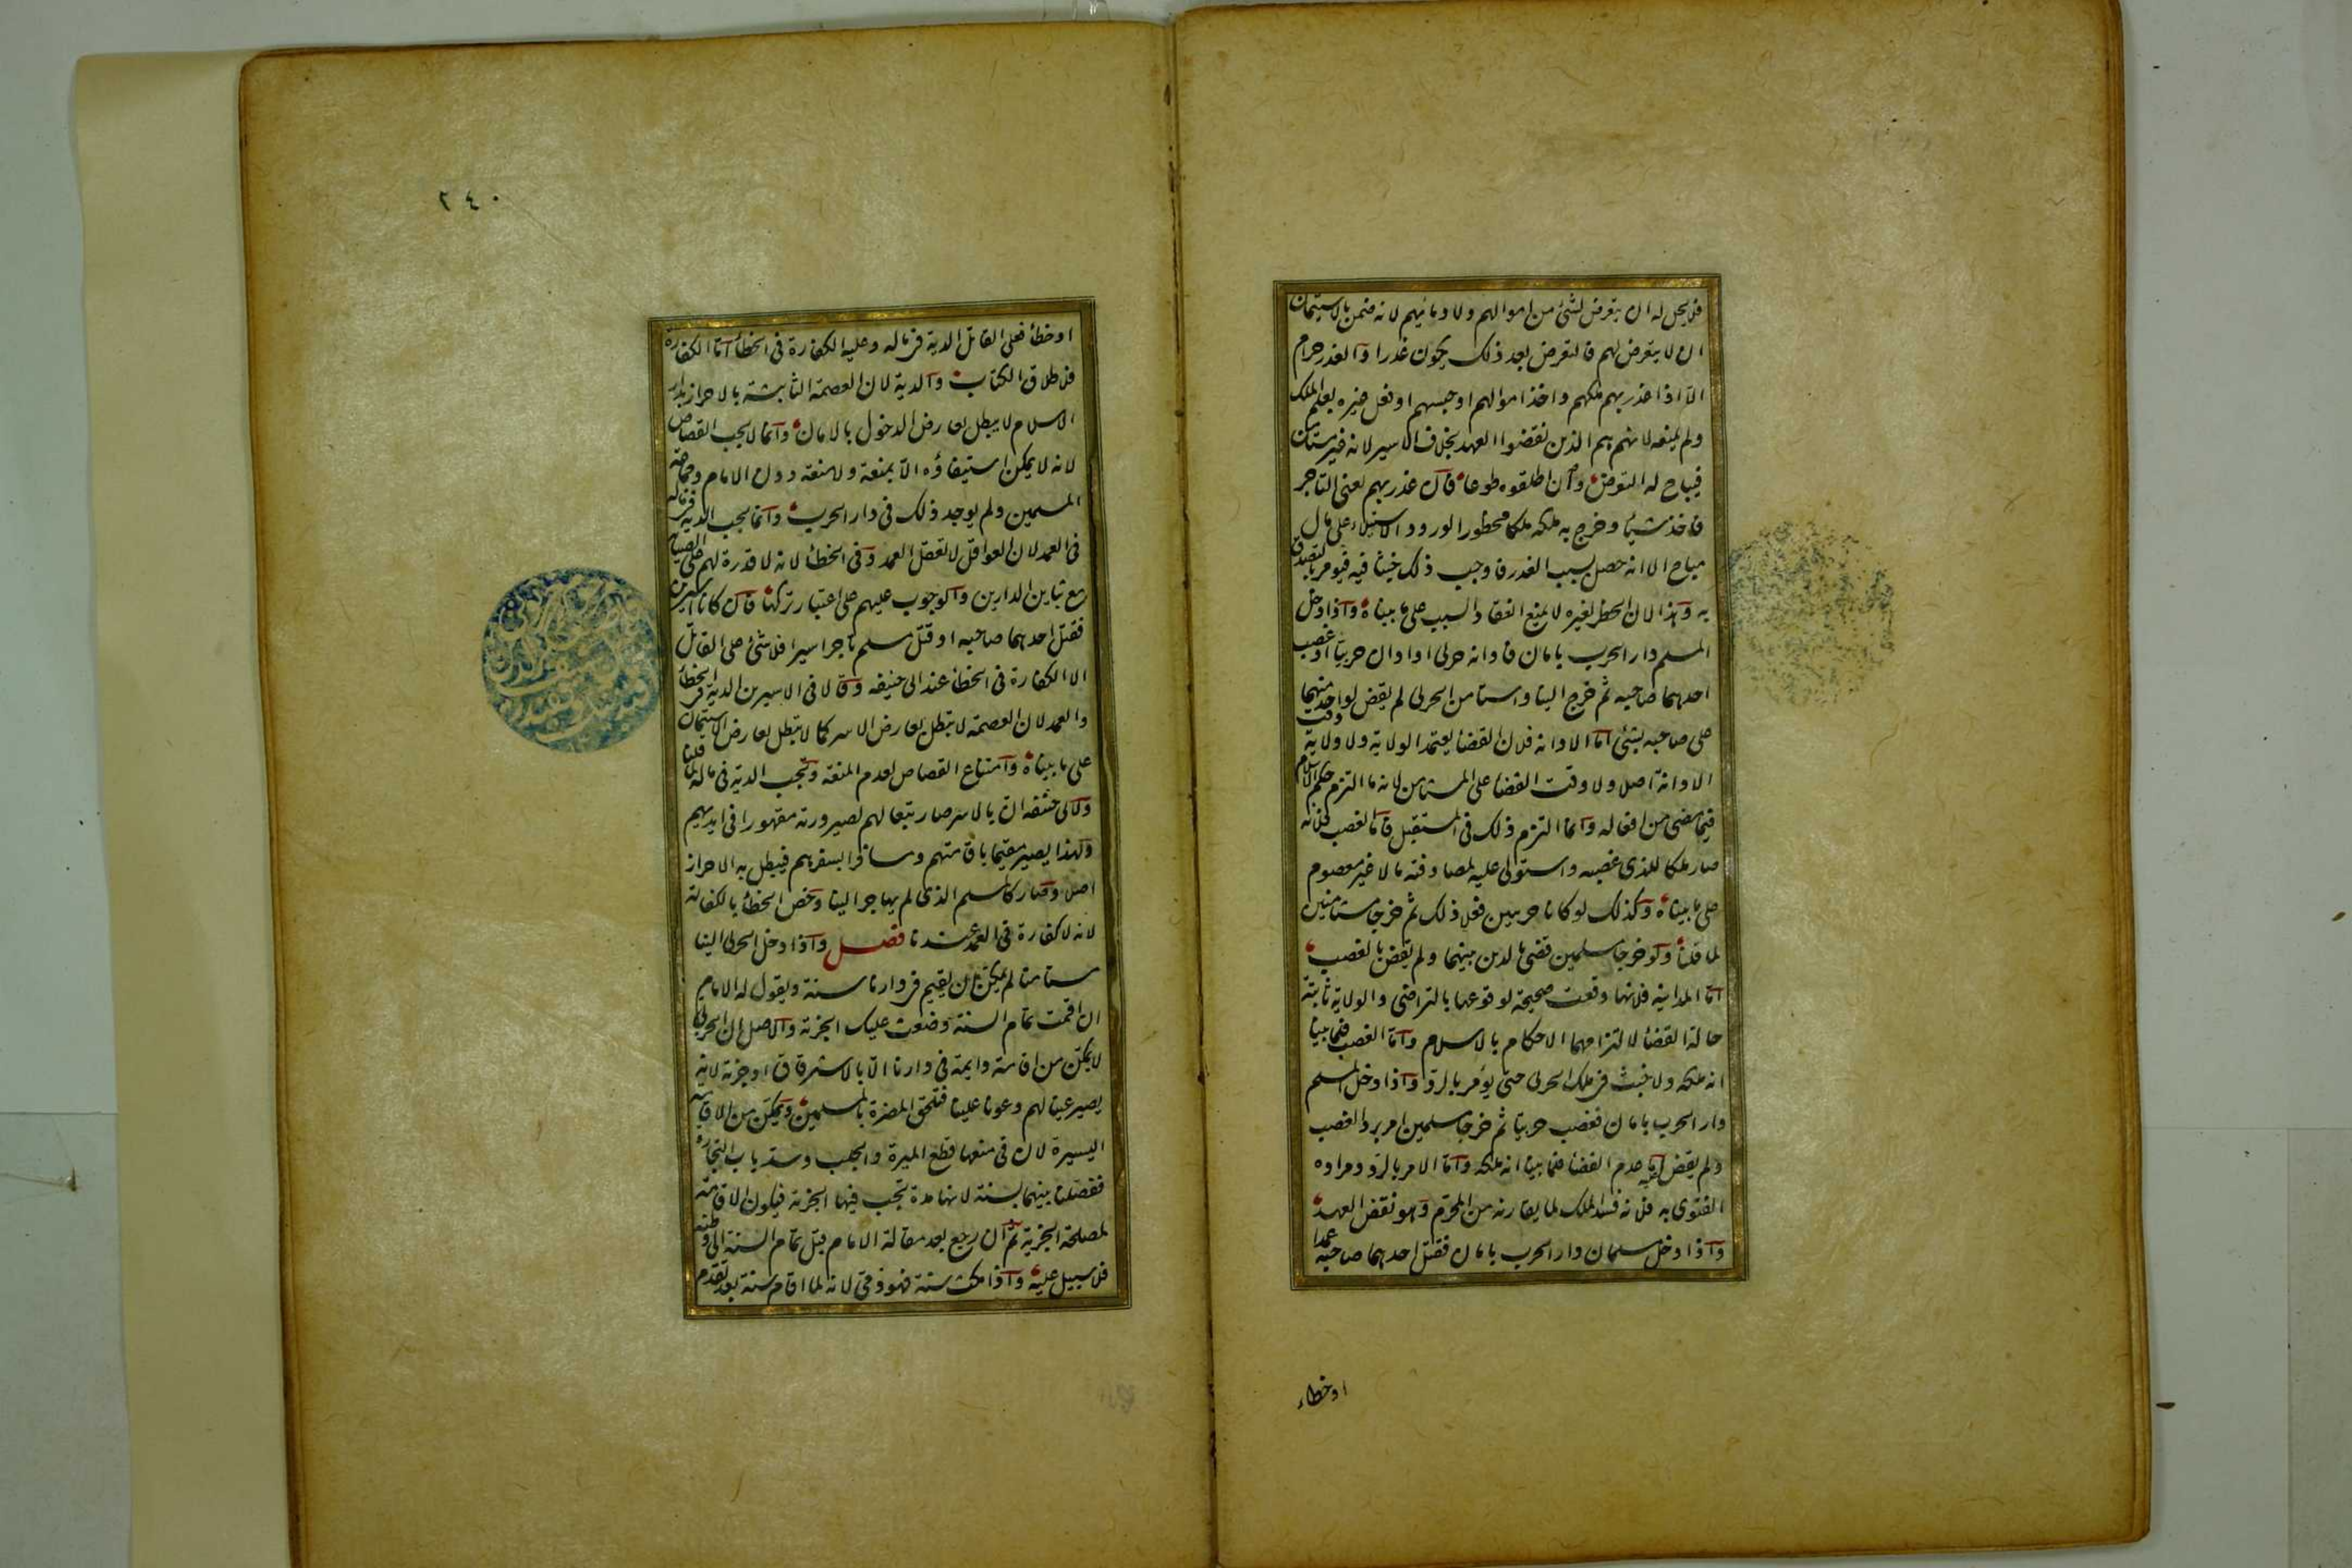 فلا يحل له ان يتعرض لشئ من اموالهم ولا دمائهم لانه ضمن بالاستيمان
ان لا يتعرض لهم فالتعرض بعد ذلك يكون غدرا والغدر حرام
الا اذا غدر بهم ملكهم واخذ اموالهم او حبسهم او فعل غيره بعلم الملك
ولم يمنعه لانهم هم الذين نقضوا العهد بخلاف الاسير لانه غير مستأمن
فيباح له التعرض وان اطلقوه طوعا فان غدر بهم يعنى التاجر
فاخذ شيئا وخرج به ملكه ملكا محظورا لورود الاستيلاء على مال
مباح الا انه حصل بسبب الغدر فاوجب ذلك خبثا فيه فيؤمر بالتصدق
به وهذا لان الحظر لغيره لا يمنع انعقاد السبب على ما بيناه واذا دخل
المسلم دار الحرب بامان فادانه حربى او ادان حربيا او غصب
احدهما صاحبه ثم خرج الينا واستامن الحربى لم يقض لواحد منهما
على صاحبه بشئ اما الادانة فلان القضا يعتمد الولاية ولا ولاية وقت
الادانة اصلا ولا وقت القضا على المستامن لانه ما التزم حكم الاسلام
فيما مضى من افعاله وانما التزم ذلك فى المستقبل واما الغصب فلانه
صار ملكا للذى غصبه واستولى عليه لمصادفته مالا غير معصوم
على ما بيناه وكذلك لو كانا حربيين فعلا ذلك ثم خرجا مستامنين
لما قلنا ولو خرجا مسلمين قضى بالدين بينهما ولم يقض بالغصب
اما المداينة فلانها وقعت صحيحة لوقوعها بالتراضى والولاية ثابتة
حالة القضا لالتزامهما الاحكام بالاسلام واما الغصب فلما بينا
انه ملكه ولا خبث فى ملك الحربى حتى يؤمر بالرد واذا دخل المسلم
دار الحرب بامان فغصب حربيا ثم خرجا مسلمين امر برد الغصب
ولم يقض عليه اما عدم القضا فلما بينا انه ملكه واما الامر بالرد ومراده
الفتوى به فلانه فسد الملك لما يقارنه من المحرم وهو نقض العهد
واذا دخل مسلمان دار الحرب بامان فقتل احدهما صاحبه عمدا
او خطاء
٢٤٠
او خطأ فعلى القاتل الدية فى ماله وعليه الكفارة فى الخطأ اما الكفارة
فلاطلاق الكتاب والدية لان العصمة الثابتة بالاحراز بدار
الاسلام لا يبطل بعارض الدخول بالامان وانما لا يجب القصاص
لانه لا يمكن استيفاؤه الا بمنعة ولا منعة دون الامام وجماعة
المسلمين ولم يوجد ذلك فى دار الحرب وانما يجب الدية فى ماله
فى العمد لان العواقل لا تعقل العمد وفى الخطأ لانه لا قدرة لهم على الصيانة
مع تباين الدارين والوجوب عليهم على اعتبار تركها فان كانا اسيرين
فقتل احدهما صاحبه او قتل مسلم تاجر اسيرا فلا شئ على القاتل
الا الكفارة فى الخطأ عند ابى حنيفه وقالا فى الاسيرين الدية فى الخطأ
والعمد لان العصمة لا تبطل بعارض الاسر كما لا تبطل بعارض الاستيمان
على ما بيناه وامتناع القصاص لعدم المنعة وتجب الدية فى ماله لما قلنا
ولابى حنيفه ان بالاسر صار تبعا لهم لصيرورته مقهورا فى ايديهم
ولهذا يصير مقيما باقامتهم ومسافرا بسفرهم فيبطل به الاحراز
اصلا وصار كالمسلم الذى لم يهاجر الينا وخص الخطأ بالكفارة
لانه لا كفارة فى العمد عندنا فصل واذا دخل الحربى الينا
مستامنا لم يمكن ان يقيم فى دارنا سنة ويقول له الامام
ان اقمت تمام السنة وضعت عليك الجزية والاصل ان الحربى
لا يمكن من اقامة دايمة فى دارنا الا بالاسترقاق او جزية لانه
يصير عينا لهم وعونا علينا فتلحق المضرة بالمسلمين ويمكن من الاقامة
اليسيرة لان فى منعها قطع الميرة والجلب وسد باب التجارة
ففصلنا بينهما بسنة لانها مدة تجب فيها الجزية فيكون الاقامة
لمصلحة الجزية ثم ان رجع بعد مقالة الامام قبل تمام السنة الى وطنه
فلا سبيل عليه واذا مكث سنة فهو ذمى لانه لما اقام سنة بعد تقدم